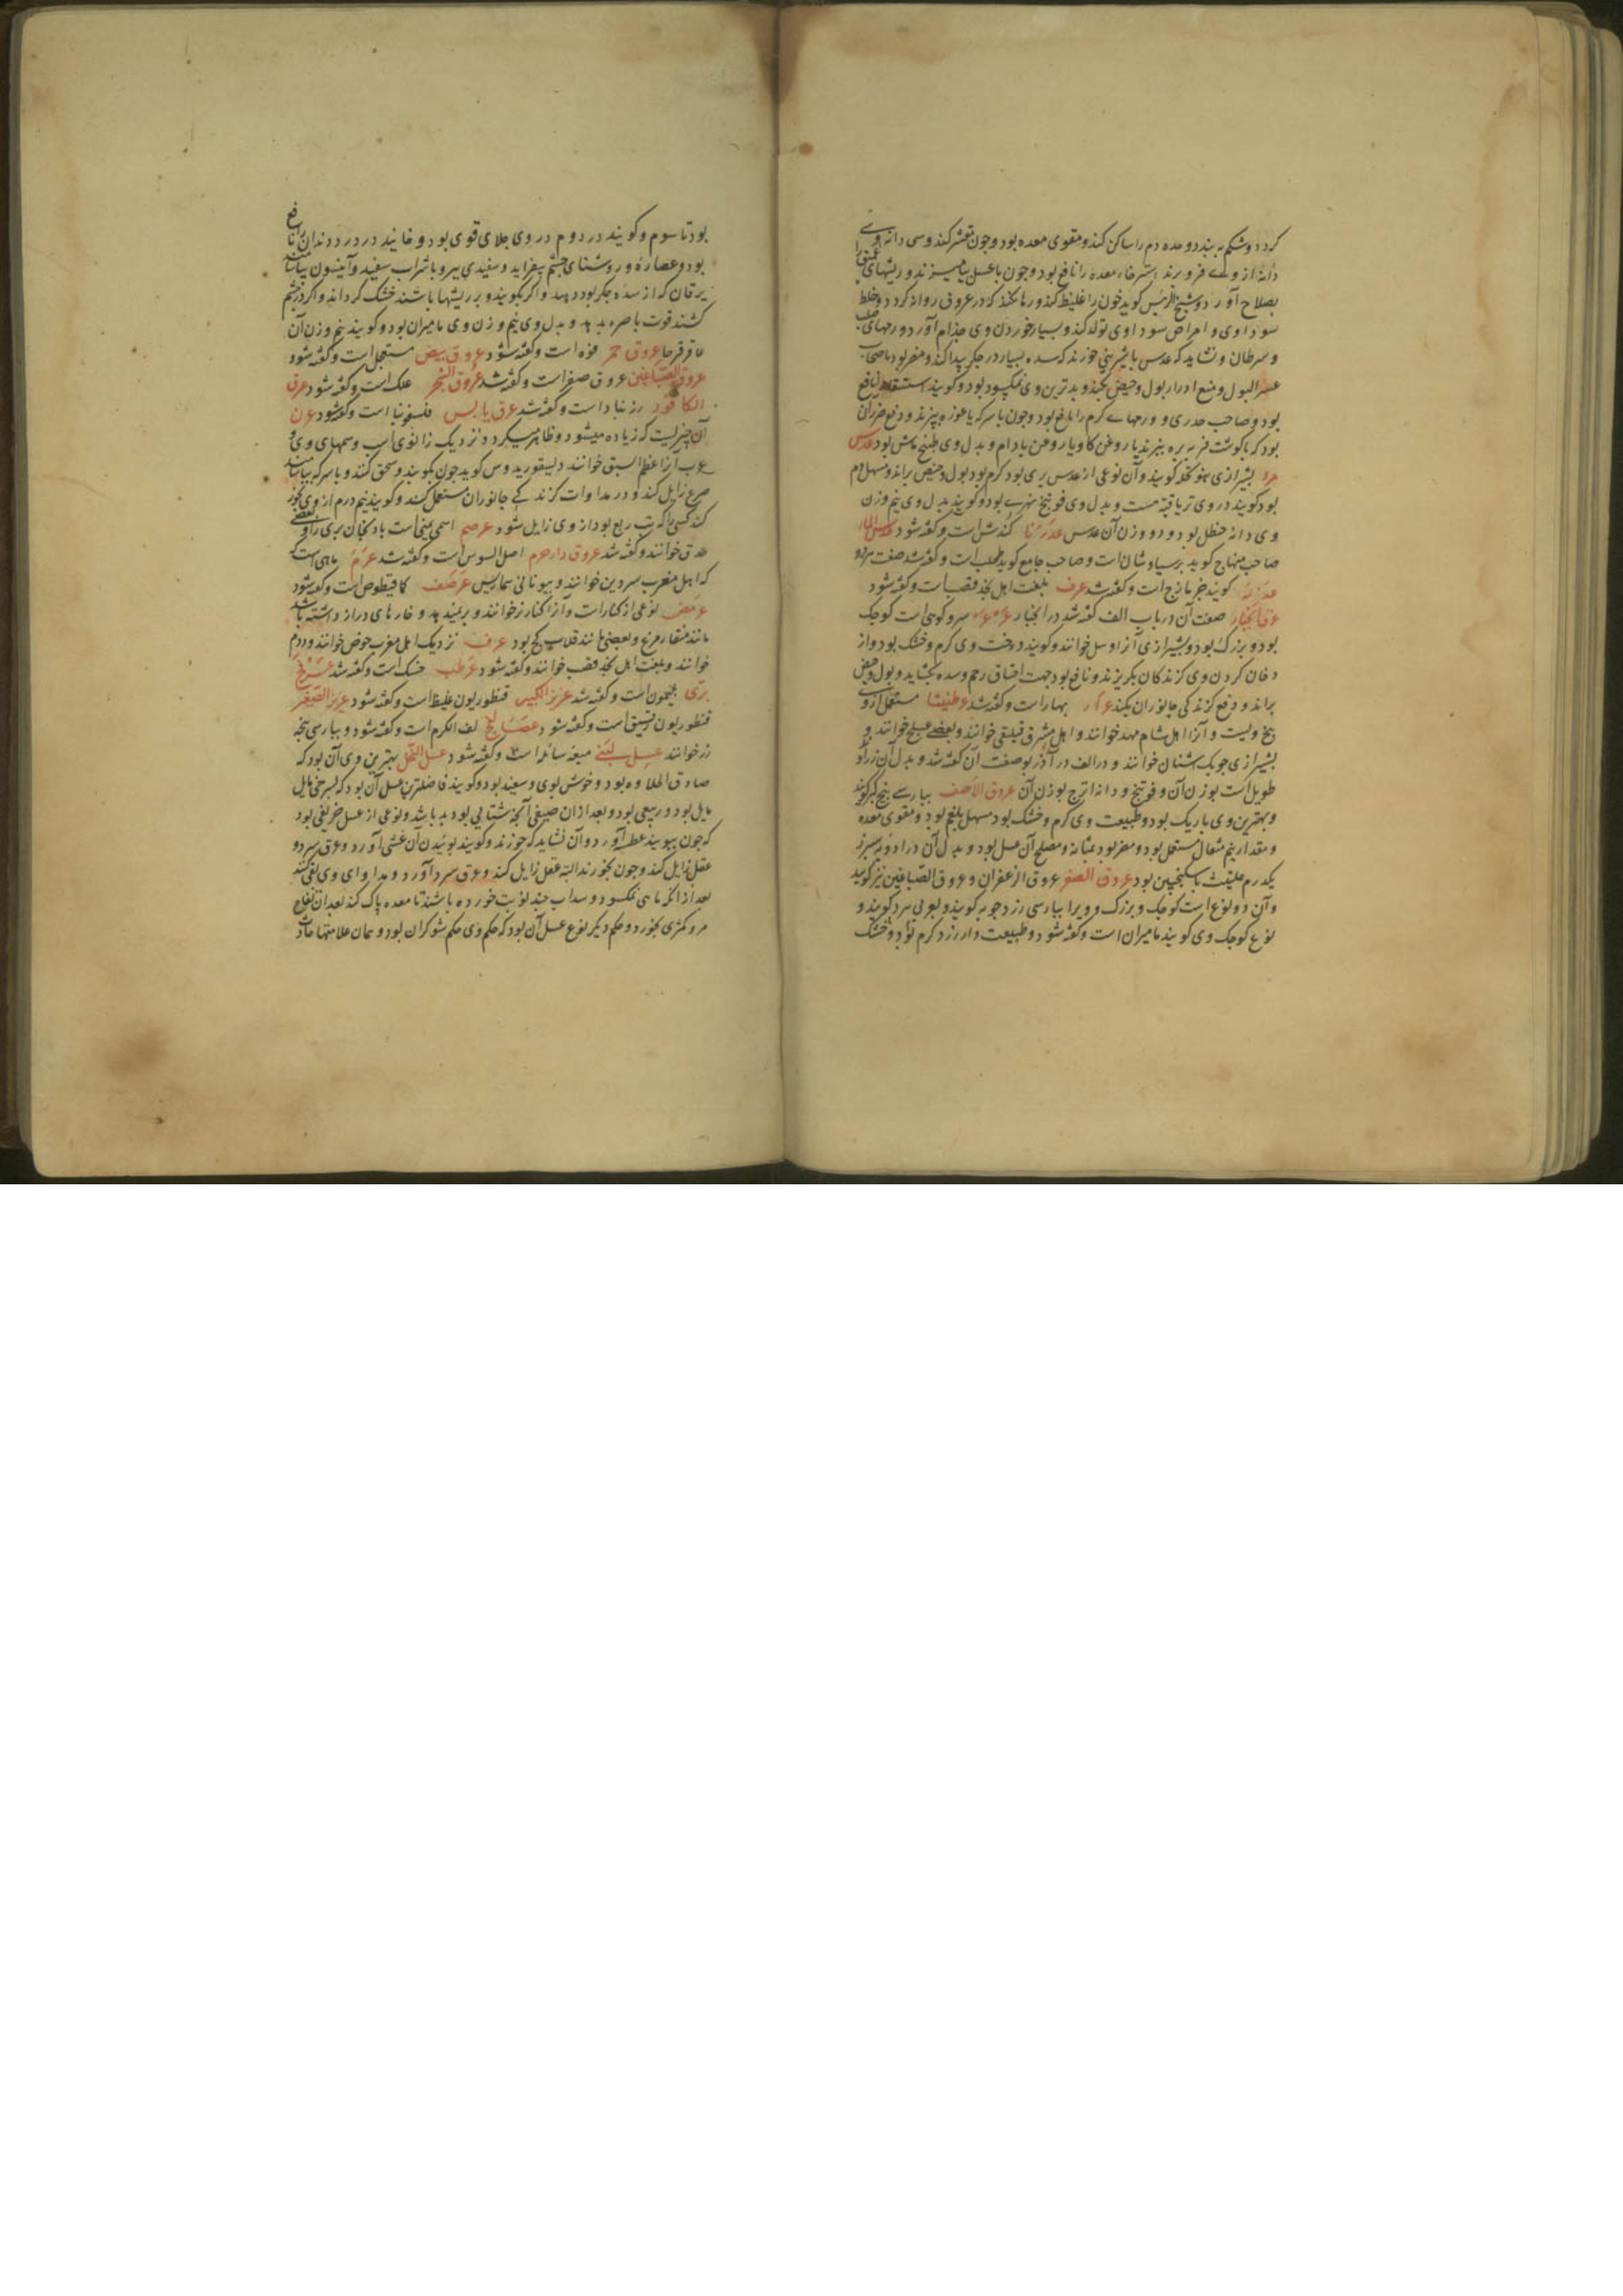 کردد و شکم به بندد و حده دم را ساکن کند و مقوی معده بود و چون مقشر کنند و سی دانه
دانه از وی فرو برند استرخاء معده را نافع بود و چون با عسل بیامیزند و ریشهای عمیق را
بصلاح آورد و شیخ الرئیس کوید خون را غلیظ کند و رها نکند که در عروق روانه کردد و خلط
سوداوی و امراض سوداوی تولد کند و بسیار خوردن وی جذام آورد و ورمهای صلب
و سرطان و نشاید که عدس با شیرینی خورند که سده بسیار در جکر پیدا کند و مضر بود باصحاب
عسر البول و منع ادرار بول و حیض بکند و بدترین وی نمکسود بود و کویند استسقا را نافع
بود و صاحب جدری و ورمهای کرم را نافع بود و چون با سرکه یا غوره بپزند و دفع ضرر آن
بود که با کوشت فربه بره بپزند یا روغن کاو یا روغن بادام و بدل وی طبیخ ماش بود عدس
مره بشیرازی کویند و آن نوعی از عدس بری بود کرم بود بول و حیض براند و مسهل دم
بود کویند در وی تریاقیة هست و بدل وی فوتنج نهری بود و کویند بدل وی نیم وزن
وی دانه حنظل بود و دو وزن آن عدس کندش است و کفته شود عدس الماء
صاحب منهاج کوید پرسیاوشان است و صاحب جامع کوید طحلب است و کفته شد صفت هر دو
کویند جزمازج است و کفته شد عرف بلغت اهل نجد قصب است و کفته شود
عرق انجبار صفت آن در باب الف کفته شد در انجبار عرعر سرو کوهی است کوچک
بود و بزرک بود و بشیرازی آنرا اوسل خوانند و کویند درخت وی کرم و خشک بود و از
دخان کردن وی کزندکان بکریزند و نافع بود جهت اختناق رحم و سده بکشاید و بول و حیض
براند و دفع کزندکی جانوران بکند عرار بهار است و کفته شد عرطنیثا مستعمل از وی
بیخ ویست و آنرا اهل شام خوانند و اهل مشرق خوانند و بعضی خوانند و
بشیرازی چوبک اشنان خوانند و در الف در آذربو صفت آن کفته شد و بدل آن زراوند
طویل است بوزن آن و فوتنج و دانه اترج بوزن آن عروق الاصف بپارسی بیخ کبر کویند
و بهترین وی باریک بود و طبیعت وی کرم و خشک بود مسهل بلغم بود و مقوی معده
و مقدار نیم مثقال مستعمل بود و مضر بود بمثانه و مصلح آن عسل بود و بدل آن در ادویه سپرز
یکدرم حلتیت با سکنجبین بود عروق الصفر عروق الزعفران و عروق الصباغین نیز کویند
و آن دو نوع است کوچک و بزرک و ویرا بپارسی زردچوبه کویند و بعربی هرد کویند و
نوع کوچک وی کویند مامیران است و کفته شود و طبیعت دارزرد کرم بود و خشک
بود تا سوم و کویند در دوم در وی جلای قوی بود و خائیدن در درد دندان را نافع
بود و عصاره وی روشنای چشم بیفزاید و سفیدی ببرد و با شراب سفید و آنیسون بیاشامند
یرقان که از سده جکر بود بدهد و اکر بکویند و بر ریشها باشند خشک کرداند و اکر در چشم
کشند قوت باصره بدهد و بدل وی نیم وزن وی مامیران بود و کویند نیم وزن آن
عاقرقرحا عروق حمر فوه است و کفته شود عروق بیض مستعجل است و کفته شود
عروق الصباغین عروق صفر است و کفته شد عروق الشجر علک است و کفته شود عرق
الکافور زرنباد است و کفته شد عرق یابس است و کفته شود عرن
آن چیزیست که زیاده میشود و ظاهر میکردد نزدیک زانوی اسب و سمهای وی و
عرب آنرا عظم السبق خوانند دیسقوریدوس کوید چون بکویند و سحق کنند و با سرکه بیاشامند
صرع زایل کند و در مداوات کزندکی جانوران مستعمل کنند و کویند نیم درم از وی بخور
کند کسی را که تب ربع بود از وی زایل شود عرصم اسمی یمنی است بادنجان بری را و بعضی
حدق خوانند و کفته شد عروق دارهرم اصل السوس است و کفته شد عرم ماهی است
که اهل مغرب سردین خوانند و بیونانی سماریس عرصف کمافیطوس است و کفته شود
عرمض نوعی از کنار است و آنرا کنار خوانند و بر نمیدهد و خارهای دراز داشته باشد
مانند منقار مرغ و بعضی مانند قلاب کج بود عرف نزدیک اهل مغرب حوض خوانند و دوم
خوانند و بلغت اهل نجد قصب خوانند و کفته شود عرطب خسک است و کفته شد
بری است و کفته شد عزیز الکبیر قنطوریون غلیظ است و کفته شود عزیز الصغیر
قنطوریون دقیق است و کفته شود عسالیج لفه الکرم است و کفته شود و بپارسی
رز خوانند عسل لبنی میعه سائله است و کفته شود عسل النحل بهترین وی آن بود که
صادق الحلاوه بود و خوش بوی و سفید بود و کویند فاضلترین عسل آن بود که بسرخی مایل
مایل بود و ربیعی بود و بعد از آن صیفی آنچه شتایی بود بد باشد و نوعی از عسل حریفی بود
که چون ببویند عطسه آورد و آن نشاید که خورند و کویند بوئیدن آن غشی آورد و عرق سرد و
عقل زایل کند و چون بخورند البته عقل زایل کند و عرق سرد آورد و مداوای وی بقی کنند
بعد از آنکه ماهی نمکسود و سداب چند نوبت خورده باشند تا معده پاک کند بعد از آن تفاح
مز و کمثری بخورد و حکم دیکر نوع عسل آن بود که حکم وی حکم شوکران بود و همان علامتها حادث